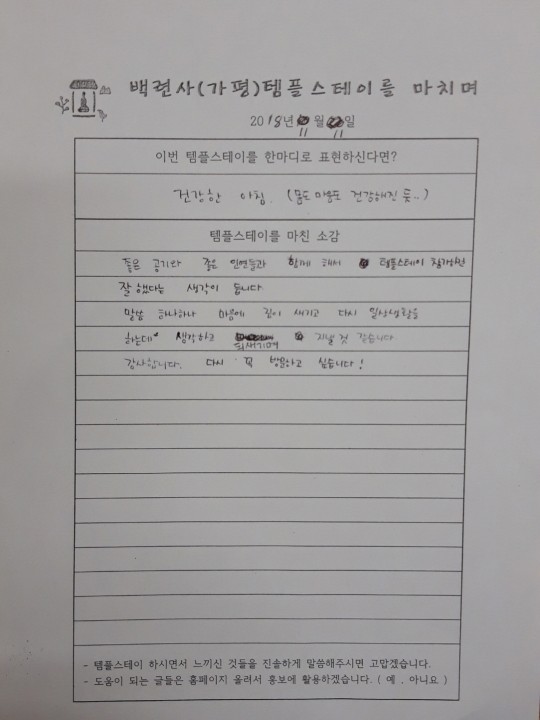 백련사(가평)템플스테이를 마치며
2018년 11월 11일
이번 템플스테이를 한마디로 표현하신다면?
건강한 아침. (몸도 마음도 건강해진 듯..)
템플스테이를 마친 소감
좋은 공기와 좋은 인연들과 함께 해서 템플스테이 참가
잘 했다는 생각이 듭니다
말씀 하나하나 마음에 깊이 새기고 다시 일상생활을
하는데 생각하고 되새기며 지낼 것 같습니다
감사합니다. 다시 꼭 방문하고 싶습니다!
- 템플스테이 하시면서 느끼신 것들을 진솔하게 말씀해주시면 고맙겠습니다.
- 도움이 되는 글들은 홈페이지 올려서 홍보에 활용하겠습니다. ( 예 , 아니요 )